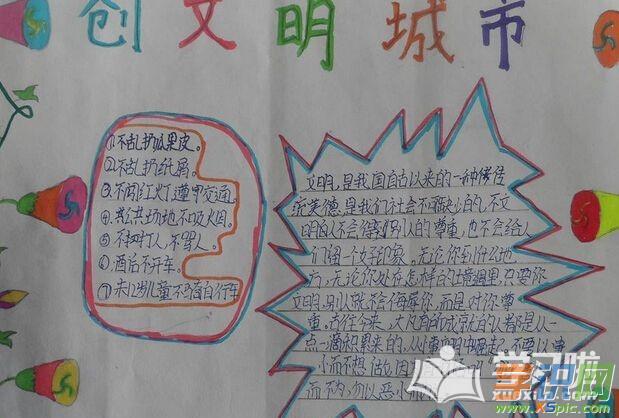 创文明城市
①不乱扔瓜果皮。
②不乱扔纸屑。
③不闯红灯,遵守交通。
④公共场地不吸烟。
⑤不打人,不骂人。
⑥酒后不开车。
⑦未12岁儿童不骑自行车
文明,是我国自古以来的一种传佳
统美德,是我们社会不可缺少的,不文
明的人不会得到别人的尊重,也不会给人
们留一个好印象。无论你到什么地
方,无论你处在怎样的环境里,只要你
文明,别人就不会侮辱你,而是对你尊
重,古往今来,大凡有所成就的人都是从一
点一滴积累来的,从小事中崛起,不要以
小而不想做,因
而不为,勿以恶小
学习啦
www.xuexila.com
学科网
XSpic.com